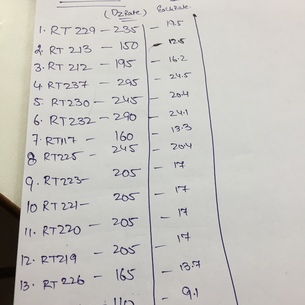 (DzRate) Rate
1. RT 229 - 235 - 19.5
2. RT 213 - 150 - 12.5
3. RT 212 - 195 - 16.2
4. RT 237 - 295 - 24.5
5. RT 230 - 245 - 20.4
6. RT 232 - 290 - 24.1
7. RT 117 - 160 - 13.3
8. RT 225 - 245 - 20.4
9. RT 223 - 205 - 17
10. RT 221 - 205 - 17
11. RT 220 - 205 - 17
12. RT 219 - 205 - 17
13. RT 226 - 165 - 13.7
- 110 - 9.1